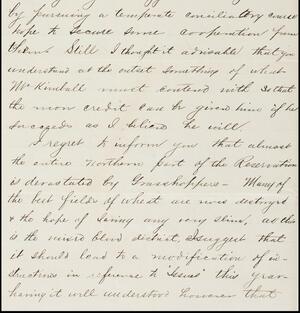 by pursuing a temperate conciliatory course
hope to secure some cooperation from
them. Still I thought it advisable that you
understand at the outset something of what
Mr Kindall must contend with so that
the more credit can be given him if he
succeeds as I believe he will.
I regret to inform you that almost
the entire Northern part of the Reservation
is devastated by Grasshoppers - Many of
the best fields of wheat are now destroyed
& the hope of saving any very slim, as this
is the mixed blood district, I suggest that
it should lead to a modification of in-
structions in reference to "issues" this year
having it well understood however that